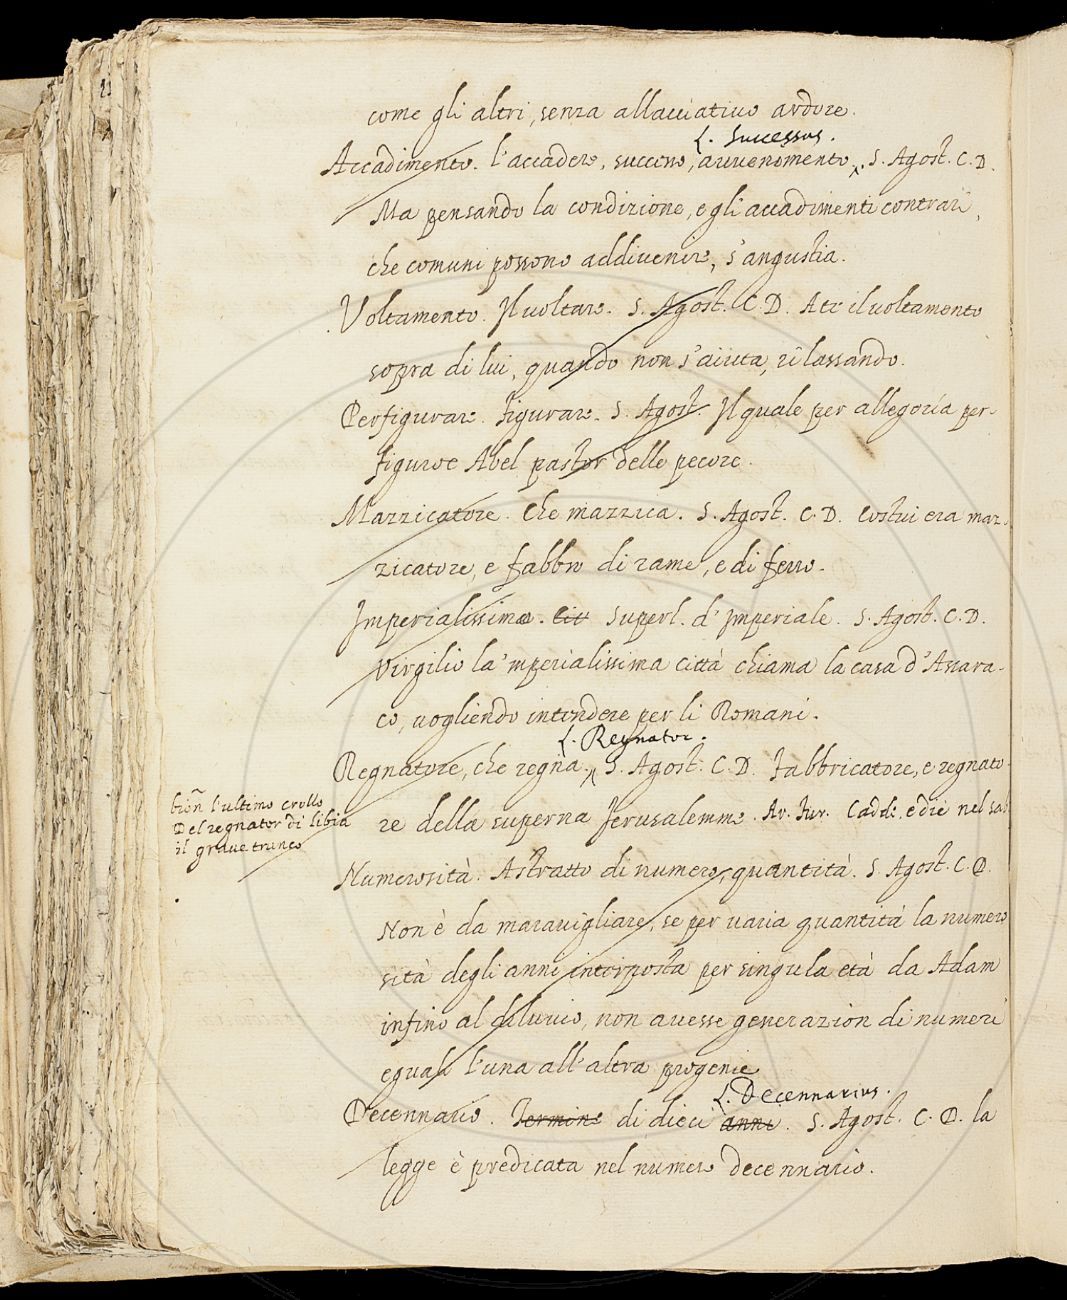 come gli altri, senza allacciativo ardore.
L. Successus.
Accadimento. l'accadere, successo, avvenomento, S. Agost. C. D.
Ma pensando la condizione, e gli accadimenti contrari,
che comuni possono addivenire, s'angustia.
Voltamento. Il voltare. S. Agost. C. D. Atr il voltamento
sopra di lui, quando non s'aiuta, rilassando.
Perfigurare. figurare. S. Agost. Il quale per allegoria per-
figuroe Abel pastor delle pecore.
Mazzicatore. Che mazzica. S. Agost. C. D. Costui era maz-
zicatore, e fabbro di rame, e di ferro.
Imperialissimo. Superl. d'Imperiale. S. Agost. C. D.
Virgilio la 'mperialissima città chiama la casa d'Assara-
co, vogliendo intendere per li Romani.
L. Regnator.
Regnatore, che regna. S. Agost. C. D. Fabbricatore, e regnato-
re della superna Jerusalemme. Ar. Fur. Cadde, e diè nel sa
l'ultimo crollo
Del regnator di Libia
il grave tronco
Numerosità. Astratto di numero, quantità. S. Agost. C. D.
Non è da maravigliare, se per varia quantità la numero
sità degli anni interposta per singula età da Adam
infino al diluvio, non avesse generazion di numeri
eguali l'una all'altra progenie
L. Decennarius.
Decennario. Termine di dieci anni. S. Agost. C. D. la
legge è predicata nel numero decennario.